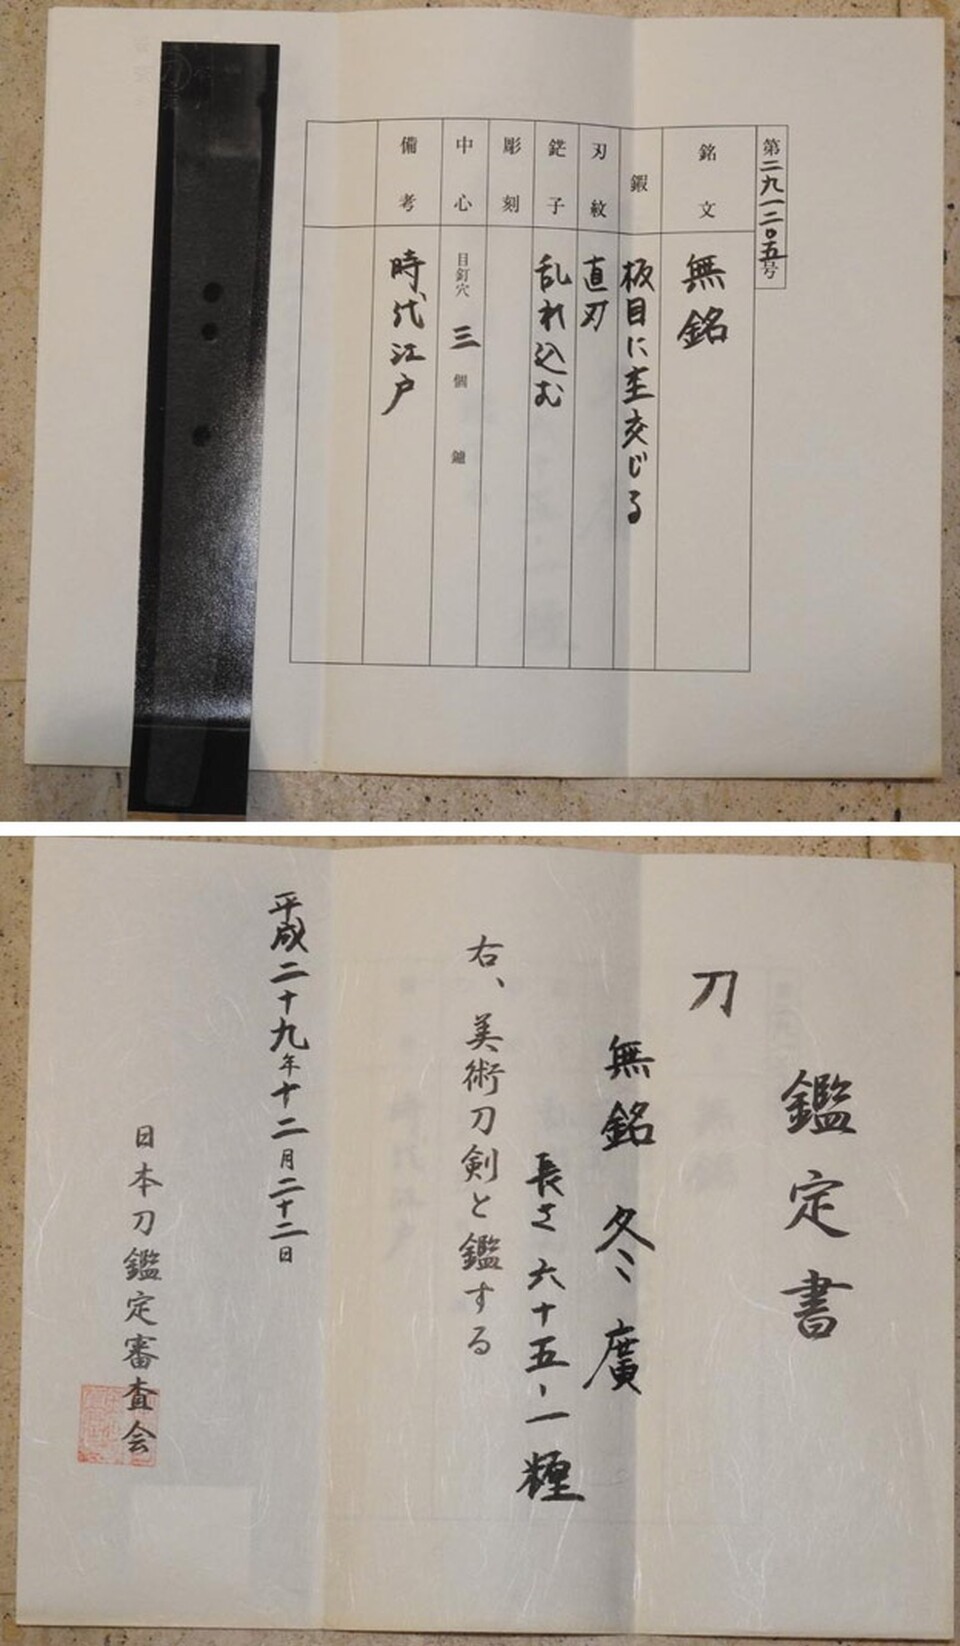 第二九一二〇五号
銘文 無銘
鍜 板目に杢交じる
刃紋 直刃
鋩子 乱れ込む
彫刻
中心 目釘穴 三 個 鑢
備考 時代江戸
鑑定書
刀
無銘 冬廣
長さ 六十五、一糎
右、美術刀剣と鑑する
平成二十九年十二月二十二日
日本刀鑑定審査会